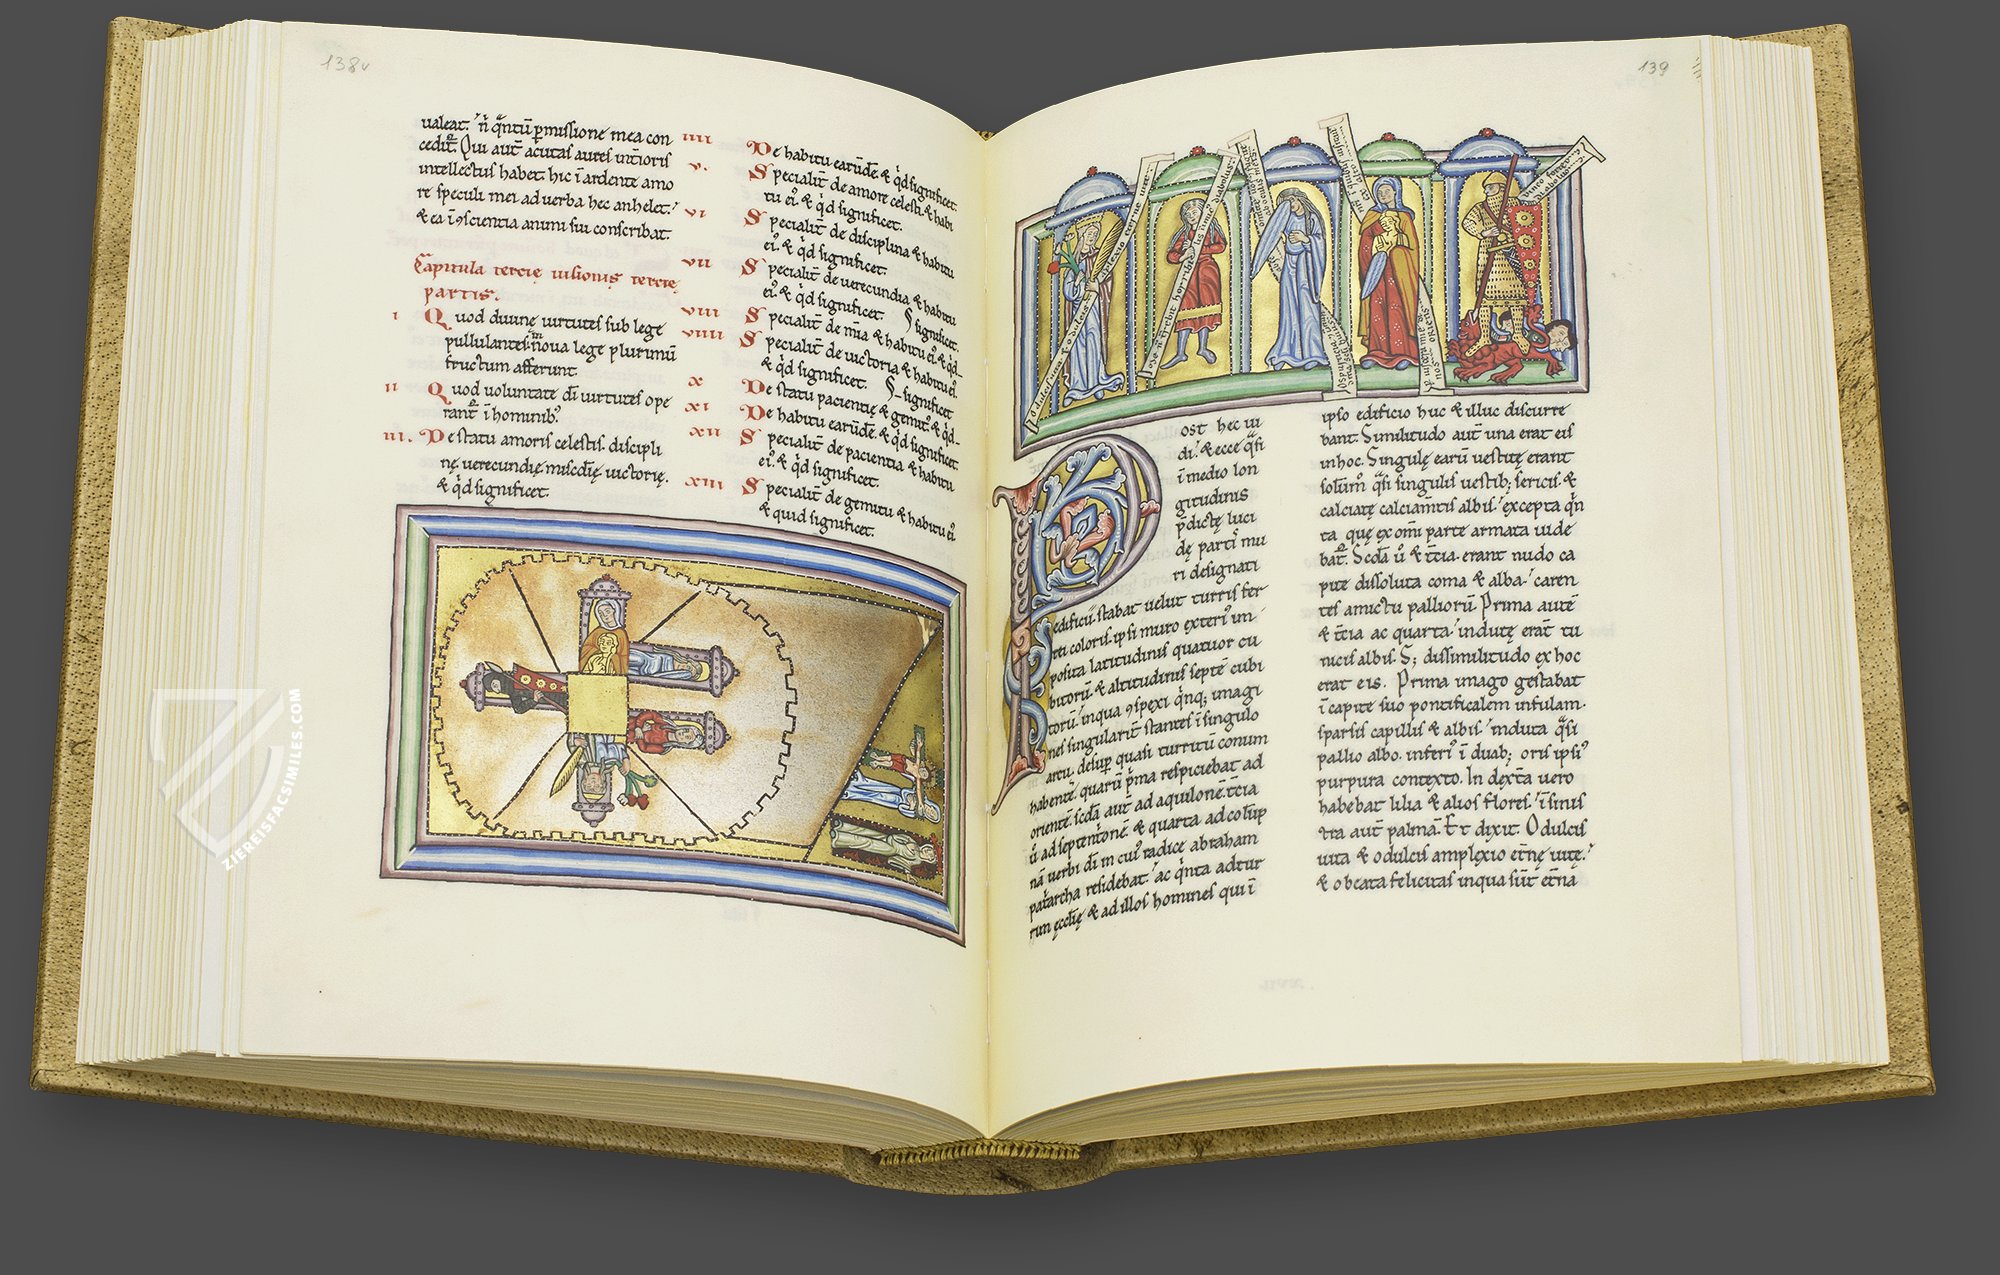 138v
ualeat. n̄ q̄ntū p̄missione mea con
cedit̄. Qui aut̄ acutas aures int̄ioris
intellectus habet. hic ī ardente amo
re speculi mei ad uerba hec anhelet.
& ea ī ꝯscientia animi sui conscribat.
Capitula tercię uisionis tercię
partis.
i Quod diuine uirtutes sub lege
pullulantes in noua lege plurimū
fructum afferunt.
ii Quod uoluntate dī uirtutes ope
rant̄ ī hominib'
iii. De statu amoris celestis. discipli
nę uerecundię. mīscdię uictorię.
& q̇d significet.
iiii De habitu earūdē. & q̇d significet.
v. Specialit̄ de amore celesti. & habi
tu ei'. & q̇d significet.
vi Specialit̄ de disciplina & habitu
ei'. & q̇d significet.
vii Specialit̄ de uerecundia & habitu
ei'. & q̇d significet
viii Specialit̄ de mīa & habitu ei'. & q̇d
significet.
viiii Specialit̄ de uictoria & habitu ei'.
& q̇d significet.
x De statu pacientię & gemit' & q̇d
significet
xi De habitu earūdē. & q̇d significet
xii Specialit̄ de pacientia & habitu
ei'. & q̇d significet.
xiii Specialit̄ de gemitu & habitu ei'
& quid significet.
139
Post hec ui
di. & ecce q̄si
ī medio lon
gitudinis
p̄dictę luci
dę partis mu
ri designati
edificii stabat uelut turris fer
rei coloris ipsi muro exteri' im
posita. latitudinis quatuor cu
bitorū. & altitudinis septē cubi
torū. inqua ꝯspexi q̇nq; imagi
nes singularit̄ stantes ī singulo
arcu. desup̄ quasi turritū conum
habentē. quarū p̄ma respiciebat ad
orientē. scd̄a aut̄ ad aquilonē. tc̄ia
u̇ ad septentrionē. & quarta ad colūp
nā uerbi dī in cui' radice abraham
patriarcha residebat. ac q̇nta ad tur
rim ęcclię & ad illos homines qui ī
ipso edificio huc & illuc discurre
bant. Similitudo aut̄ una erat eis
in hoc. Singulę earū uestitę erant
solum̄ q̄si singulis uestib; sericis. &
calciatę calciam̄tis albis. excepta q̇n
ta quę ex om̄i parte armata uide
bat̄. Scd̄a u̇ & tc̄ia. erant nudo ca
pite dissoluta coma & alba. caren
tes amictu palliorū. Prima autē
& tc̄ia ac quarta. indutę erāt tu
nicis albis. S; dissimilitudo ex hoc
erat eis. Prima imago gestabat
ī capite suo pontificalem infulam.
sparsis capillis & albis. induta q̄si
pallio albo. inferi' ī duab; oris ipsi'
purpura contexto. In dext̄a uero
habebat lilia & alios flores. ī sinis
tra aut̄ palmā. Et dixit. O dulcis
uita & o dulcis amplexio et̄nę uitę.
& o beata felicitas in qua sūt et̄na
ZIEREISFACSIMILES.COM